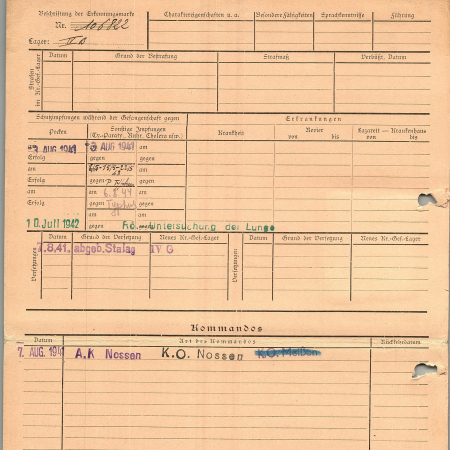 Beschriftung der Erkennungsmarke
Charaktereigenschaften u. a.
Besondere Fähigkeiten
Sprachkenntnisse
Führung
Nr. 106822
Lager:
Strafen im Kr.-Gef.-Lager
Datum
Grund der Bestrafung
Strafmaß
Verbüßt, Datum
Schutzimpfungen während der Gefangenschaft gegen
Erkrankungen
Pocken
Sonstige Impfungen
(Ty.-Paraty., Ruhr, Cholera usw.)
Krankheit
Revier
von bis
Lazarett — Krankenhaus
von bis
AUG 1941
am
AUG 1941
am
Erfolg
gegen
gegen
am
am
Erfolg
gegen
gegen
am
am 6.8.44
am
Erfolg
gegen
gegen
am
am
10. Juli 1942
Rö. Untersuchung der Lunge
Versetzungen
Datum
Grund der Versetzung
Neues Kr.-Gef.-Lager
Versetzungen
Datum
Grund der Versetzung
Neues Kr.-Gef.-Lager
7.8.41. abgeb. Stalag IV G
Kommandos
Datum
Art des Kommandos
Rückkehrdatum
7. AUG. 194
A.K Nossen K.O. Nossen